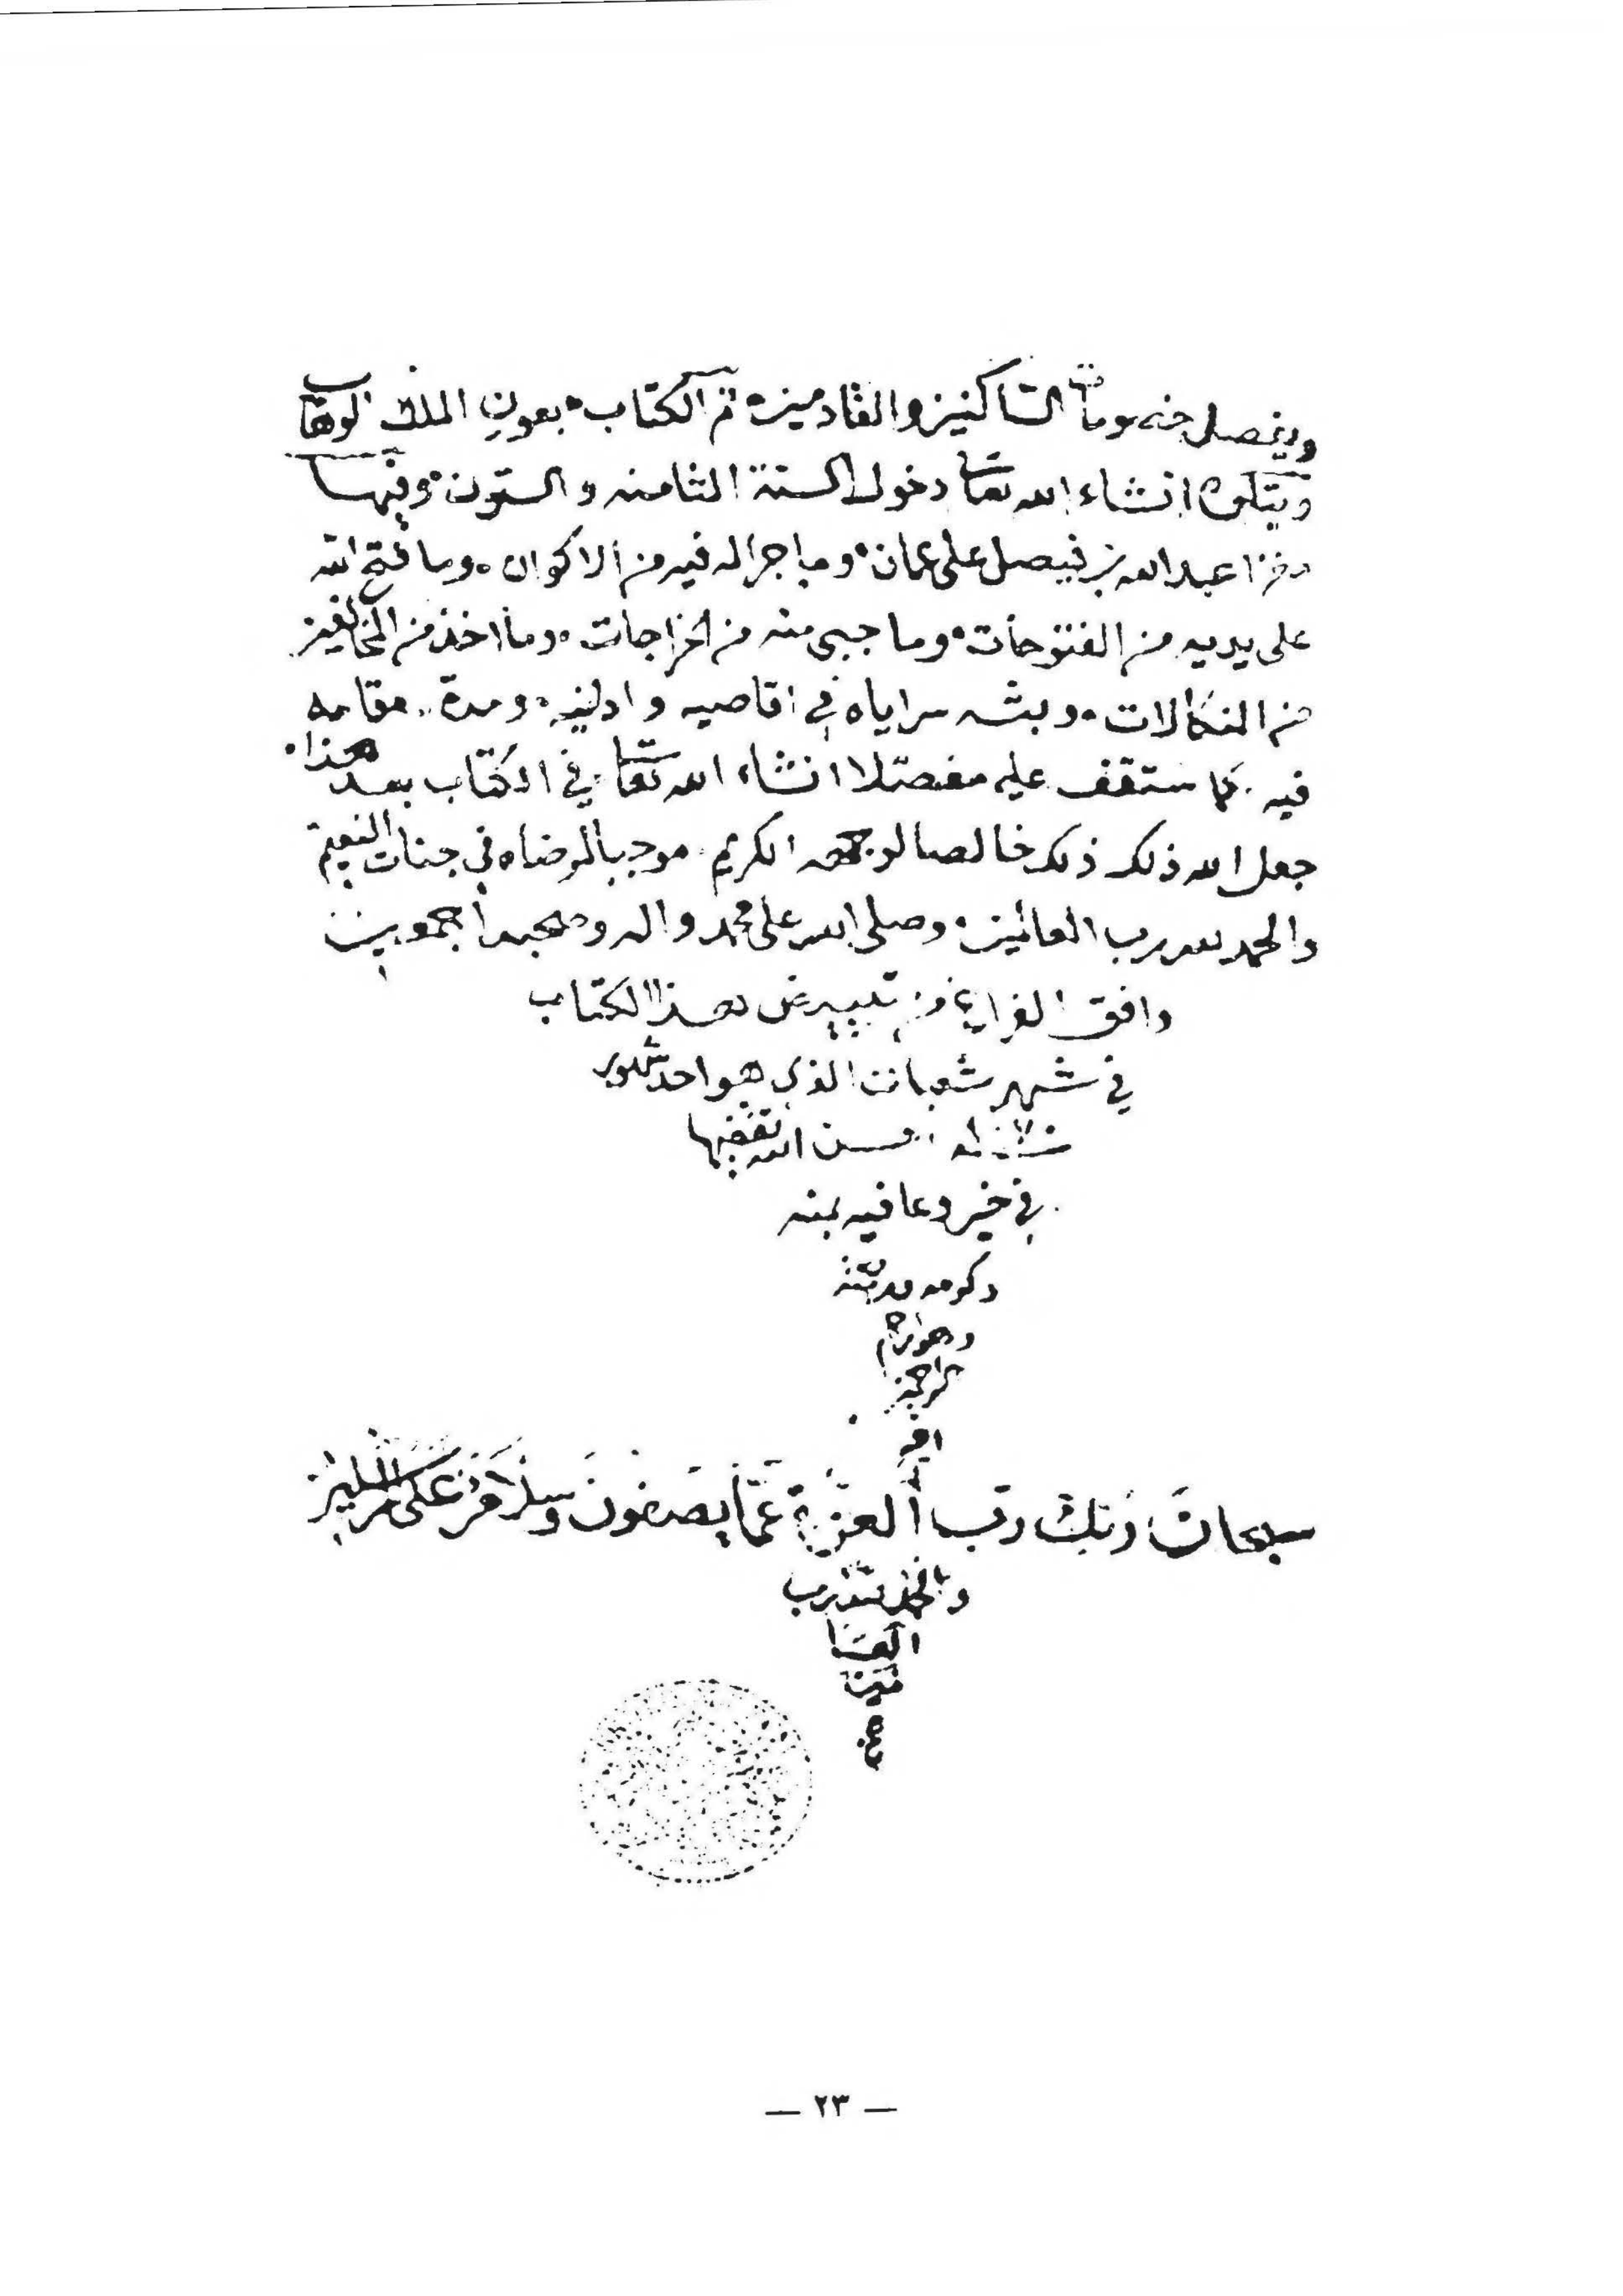 الساكنين والقادمين تم الكتاب بعون الملك الوهاب
ويتلوه انشاء الله تعالى دخول السنة الثامنه والستون وفيها
غزا عبد الله بن فيصل على عمان وما جرا له فيه من الاكوان وما فتح الله
على يديه من الفتوحات وما جبى منه من الخراجات وما اخذ من المخالفين
من النكالات وبثه سراياه في اقاصيه وادانيه ومدة مقامه
فيه كما ستقف عليه مفصلا انشاء الله تعالى في الكتاب بعد هذا
جعل الله ذلك خالصا لوجهه الكريم موجبا لرضاه في جنات النعيم
والحمد لله رب العالمين وصلى الله على محمد واله وصحبه اجمعين
وافق الفراغ من تبييض هذا الكتاب
في شهر شعبان الذي هو احد شهور
احسن الله تقضيها
في خير وعافيه بمنه
وكرمه
وهو ارحم
الراحمين
امين
سبحان ربك رب العزة عما يصفون وسلام على المرسلين
والحمد لله رب
العا
لمين
— ٢٣ —